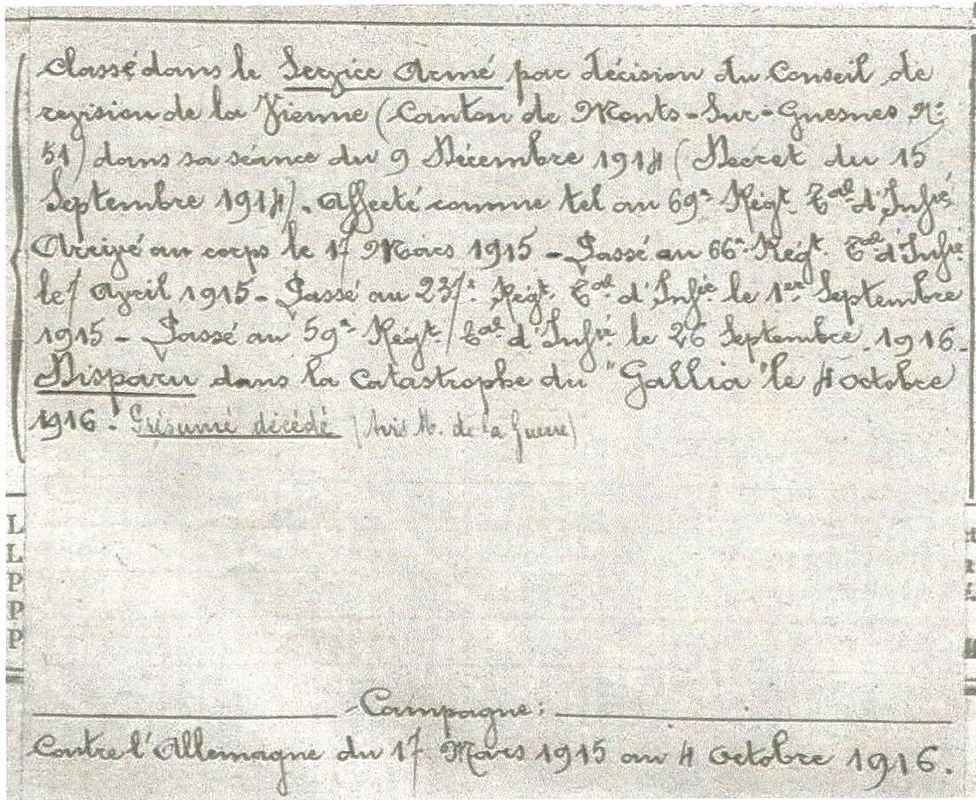 Classé dans le Service Armé par décision du Conseil de
revision de la Vienne (Canton de Monts-Sur-Guesnes N°
51) dans sa séance du 9 Décembre 1914 (Décret du 15
Septembre 1914). Affecté comme tel au 69e Régt. Tal d'Infie
Arrivé au corps le 17 Mars 1915 - Passé au 66e Régt. Tal d'Infie
le 7 Avril 1915 - Passé au 237e Régt. Tal d'Infie le 1er Septembre
1915 - Passé au 59e Régt. Tal d'Infie le 26 Septembre 1916.
Disparu dans la catastrophe du "Gallia" le 4 octobre
1916. Présumé décédé (Avis M. de la Guerre)
L
L
P
P
P
Campagne :
Contre l'Allemagne du 17 Mars 1915 au 4 Octobre 1916.